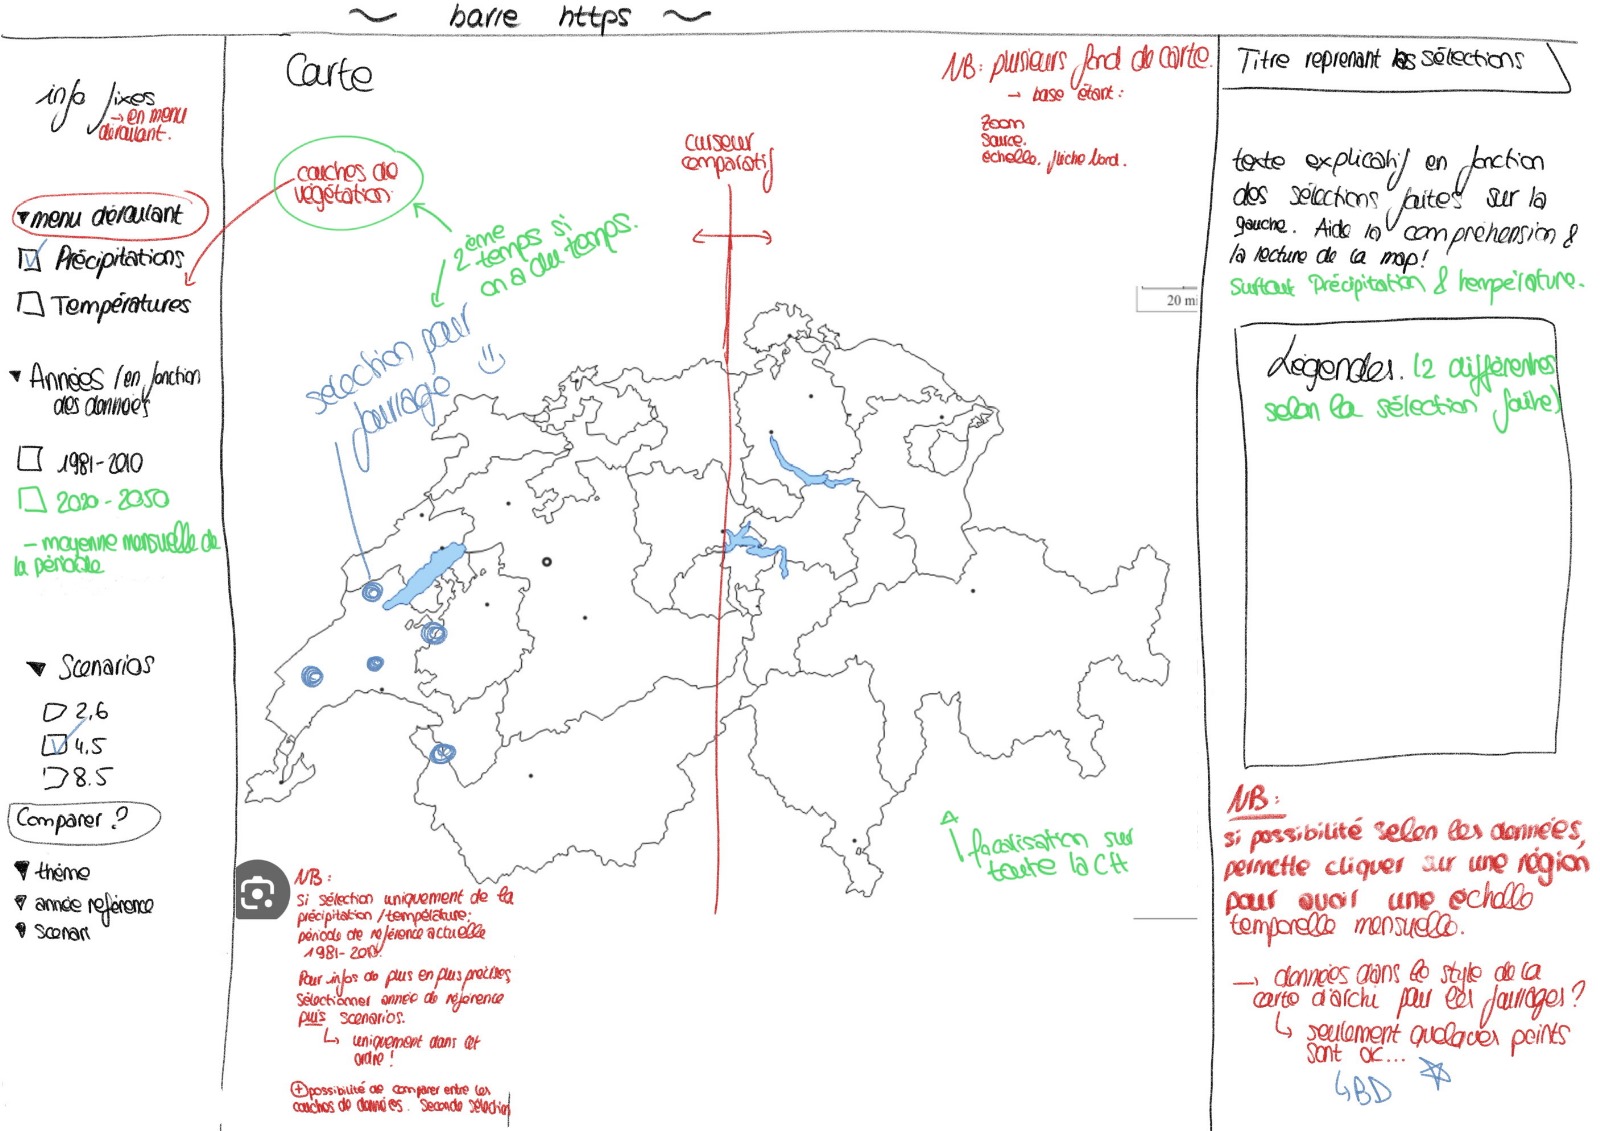 ~ barre https ~
info fixes
→ en menu
déroulant.
▼ menu déroulant
Précipitations
Températures
▼ Années (en fonction
des données)
1981-2010
2020-2050
- moyenne mensuelle de
la période
▼ Scenarios
2,6
4.5
8.5
Comparer ?
▼ thème
▼ année référence
scenari
Carte
couches de
végétation.
2ème
temps si
on a du temps.
sélection pour
fourrage
curseur
comparatif
NB: plusieurs fond de carte.
→ base étant :
Zoom
Source.
échelle. flèche Nord.
20 mi
focalisation sur
toute la CH
NB :
si sélection uniquement de la
précipitation / température;
période de référence actuelle
1981-2010.
Pour infos de plus en plus précises,
Sélectionner année de référence
puis scenarios.
↳ uniquement dans cet
ordre !
⊕ possibilité de comparer entre les
couches de données. Seconde sélection
Titre reprenant les sélections
texte explicatif en fonction
des sélections faites sur la
gauche. Aide la compréhension &
la lecture de la map!
Surtout Précipitation & température.
Légendes. (2 différentes
selon la sélection faite)
NB :
si possibilité selon les données,
permettre cliquer sur une région
pour avoir une échelle
temporelle mensuelle.
→ données dans le style de la
carte d'archi pour les fourrages ?
↳ seulement quelques points
sont ok...
↳ BD